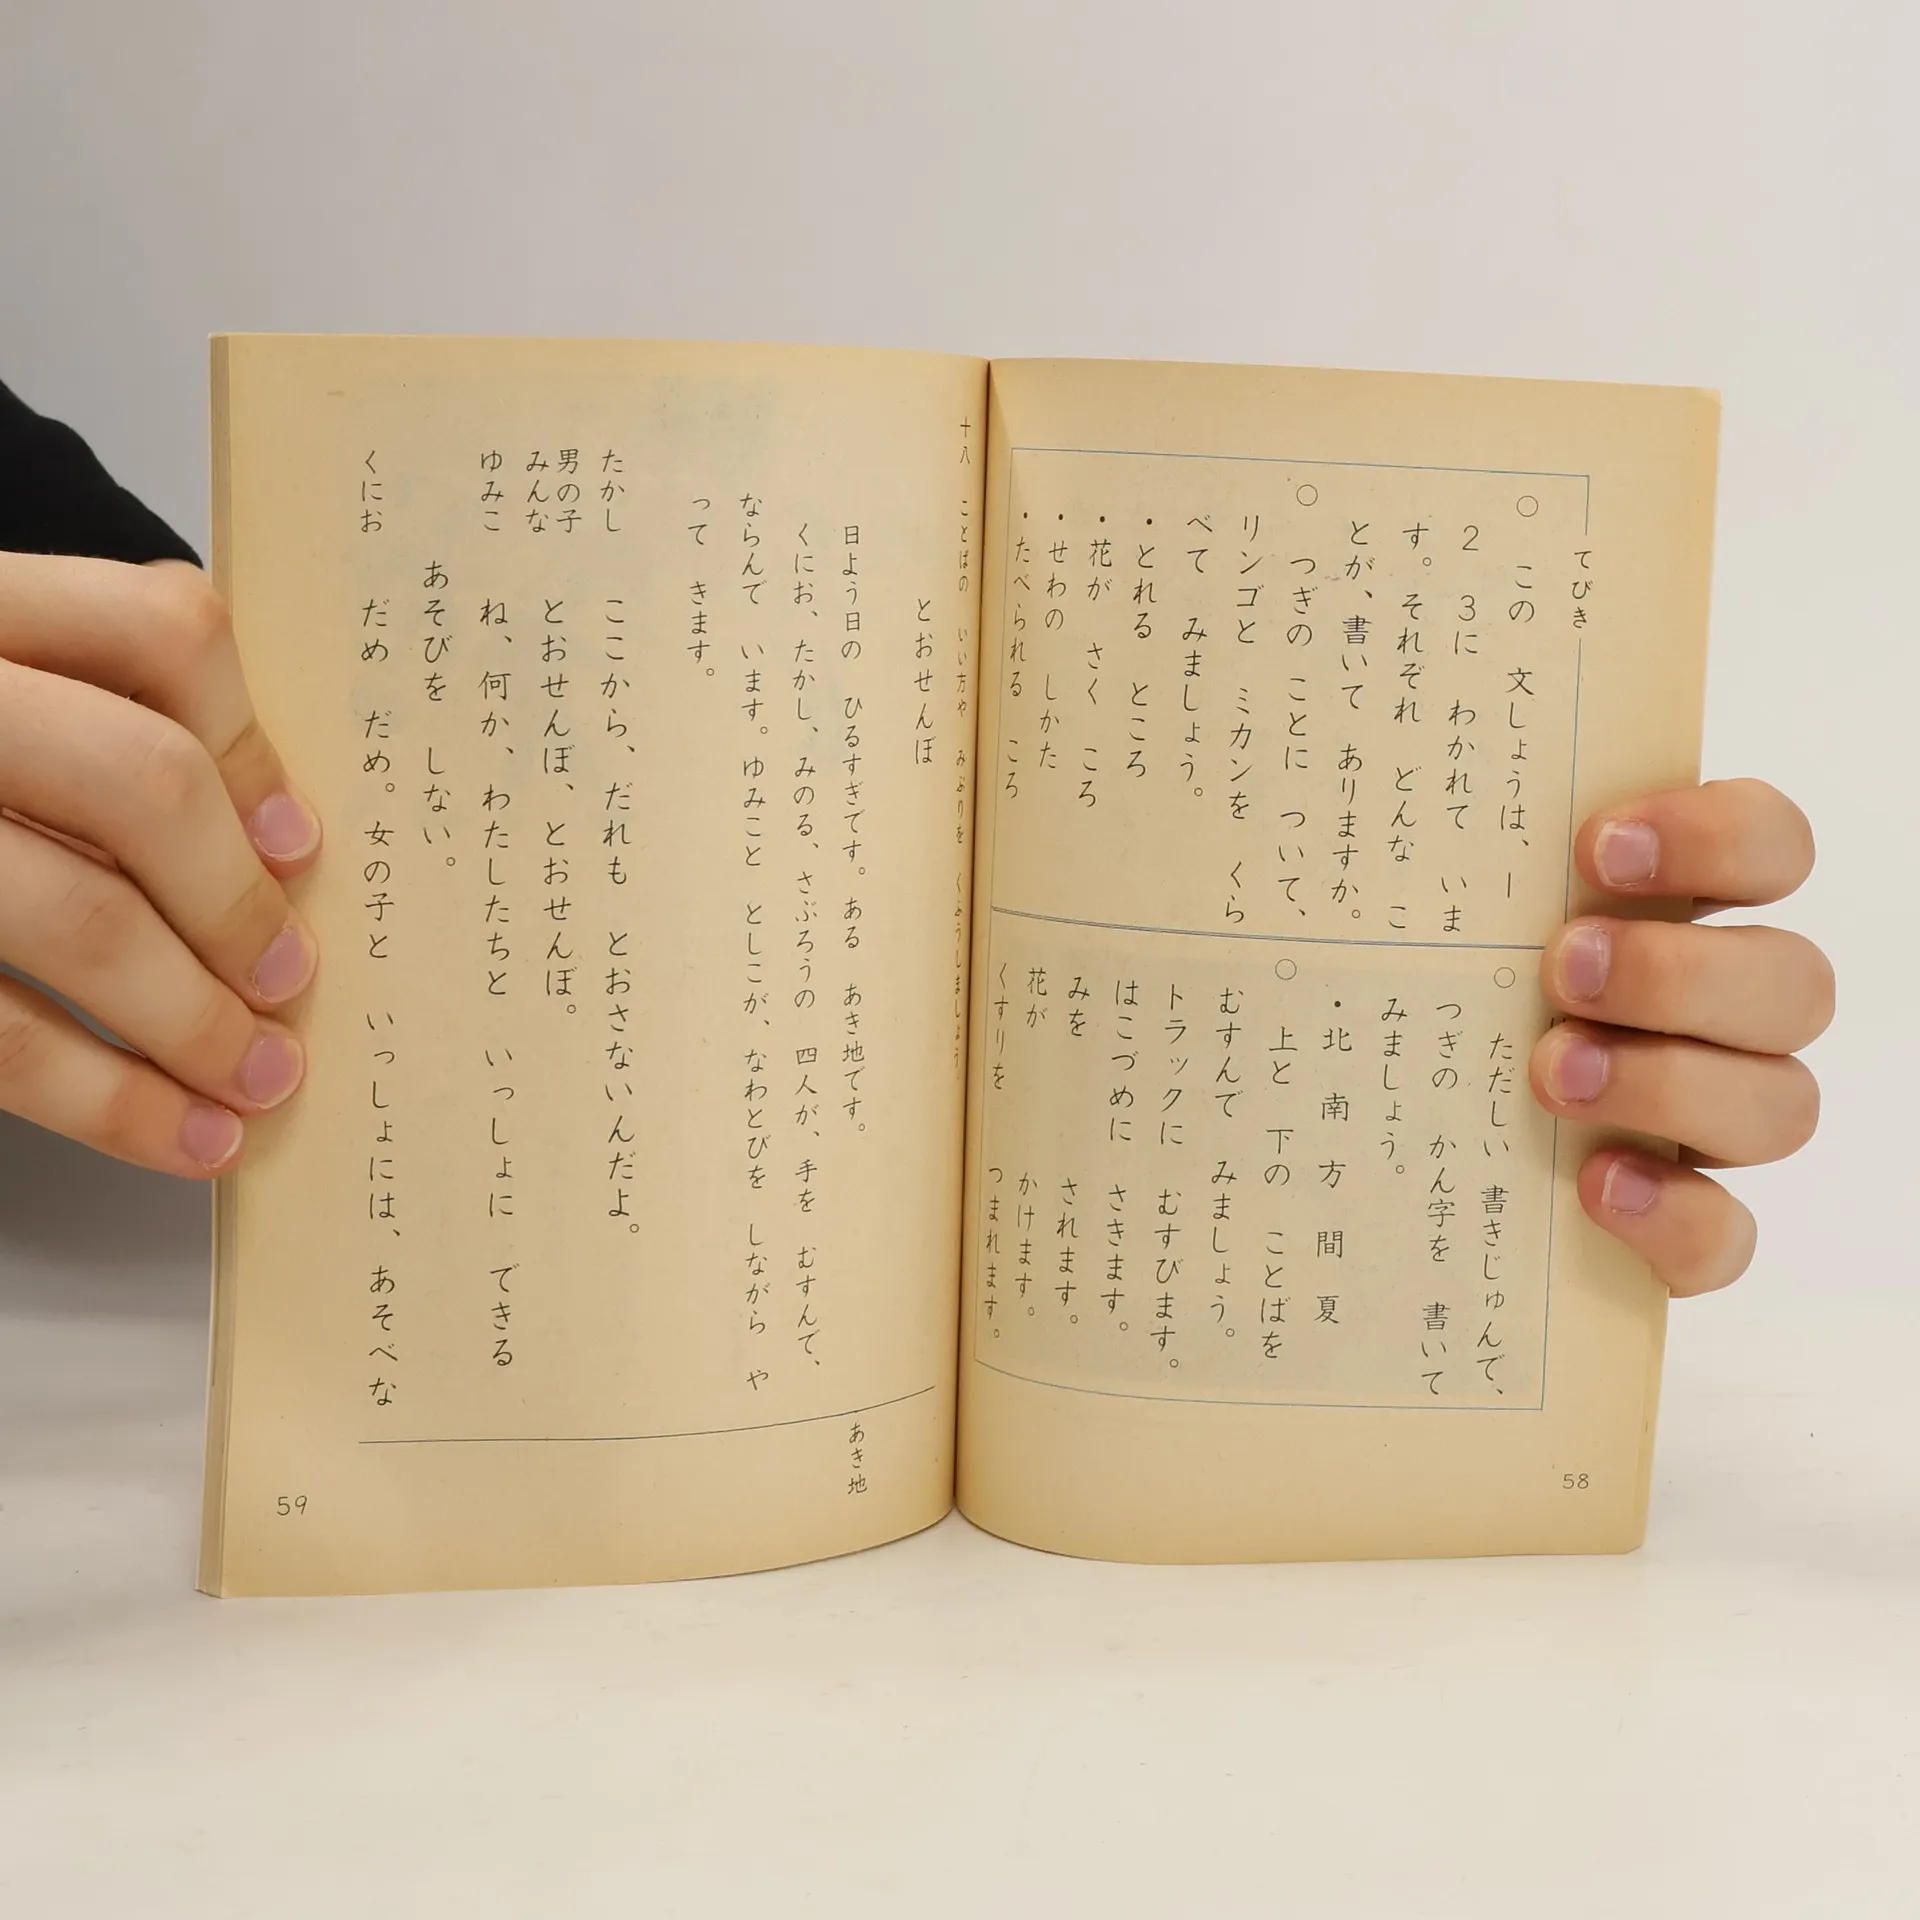 てびき
○ この 文しょうは、1
2 3に わかれて いま
す。それぞれ どんな こ
とが、書いて ありますか。
○ つぎの ことに ついて、
リンゴと ミカンを くら
べて みましょう。
・とれる ところ
・花が さく ころ
・せわの しかた
・たべられる ころ
○ ただしい 書きじゅんで、
つぎの かん字を 書いて
みましょう。
・北 南 方 間 夏
○ 上と 下の ことばを
むすんで みましょう。
トラックに むすびます。
はこづめに さきます。
みを されます。
花が かけます。
くすりを つまれます。
58
十八 ことばの いい方や みぶりを くふうしましょう
とおせんぼ
日よう日の ひるすぎです。ある あき地です。
くにお、たかし、みのる、さぶろうの 四人が、手を むすんで、
ならんで います。ゆみこと としこが、なわとびを しながら や
って きます。
たかし ここから、だれも とおさないんだよ。
男の子
みんな とおせんぼ、とおせんぼ。
ゆみこ ね、何か、わたしたちと いっしょに できる
あそびを しない。
くにお だめ だめ。女の子と いっしょには、あそべな
あき地
59